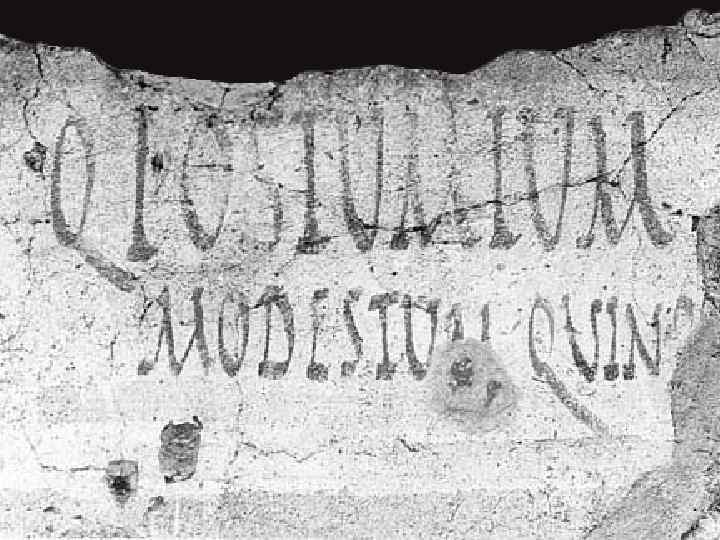 Q POSTUMIUM
MODESTUM QUINQ